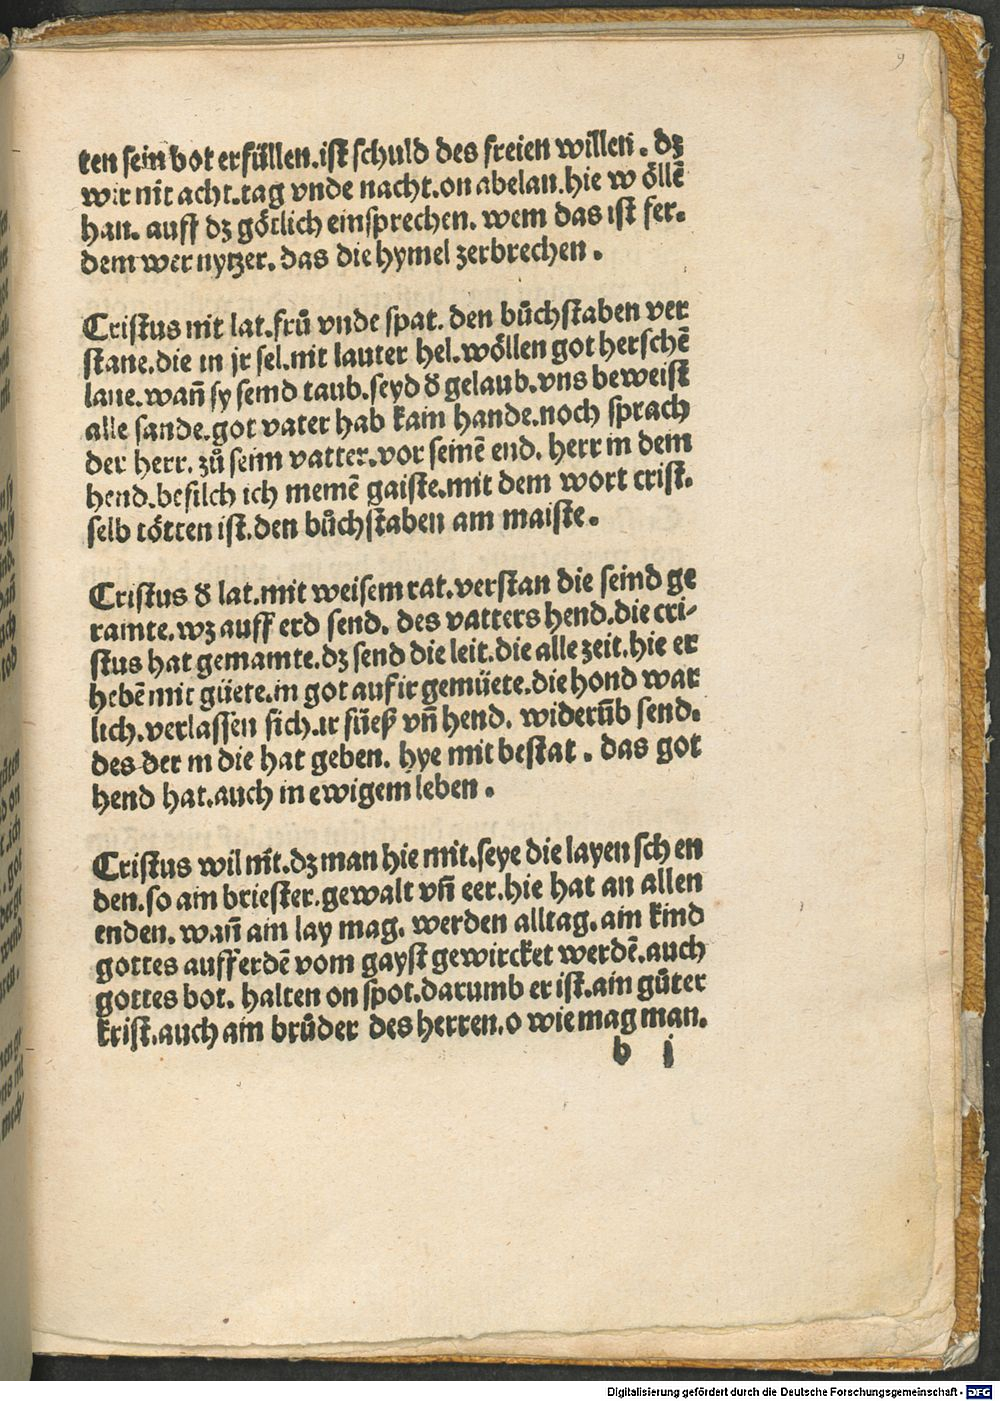 9
ten sein bot erfüllen.ist schuld des freien willen. dz
wir nit acht.tag vnde nacht.on abelan.hie wöllē
han. auff dz götlich einsprechen. wem das ist fer.
dem wer nytzer. das die hymel zerbrechen.
Cristus nit lat.frů vnde spat. den bůchstaben ver
stane.die in jr sel.nit lauter hel.wöllen got herschē
lane.wañ sy seind taub.seyd d̕ gelaub.vns beweist
alle sande.got vater hab kain hande.noch sprach
der herr. zů seim vatter.vor seinē end. herr in dein
hend.befilch ich meinē gaiste.mit dem wort crist.
selb tötten ist.den bůchstaben am maiste.
Cristus d̕ lat.mit weisem rat.verstan die seind ge
rainte.wz auff erd send. des vatters hend.die cri-
stus hat gemainte.dz send die leit.die alle zeit.hie er
hebē mit güete.in got auf ir gemüete.die hond war
lich.verlassen sich.ir füeß vñ hend. widerūb send.
des der in die hat geben. hye mit bestat. das got
hend hat.auch in ewigem leben.
Cristus wil nit.dz man hie mit.seye die layen schen
den.so ain briester.gewalt vñ eer.hie hat an allen
enden. wañ ain lay mag. werden alltag. ain kind
gottes aufferdē vom gayst gewircket werdē.auch
gottes bot. halten on spot.darumb er ist.ain gůter
krist.auch ain brůder des herren.o wie mag man.
b j
Digitalisierung gefördert durch die Deutsche Forschungsgemeinschaft - DFG